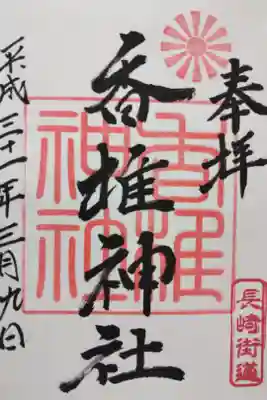 奉拝
香椎神社
香椎神社
長崎街道
平成三十一年三月九日